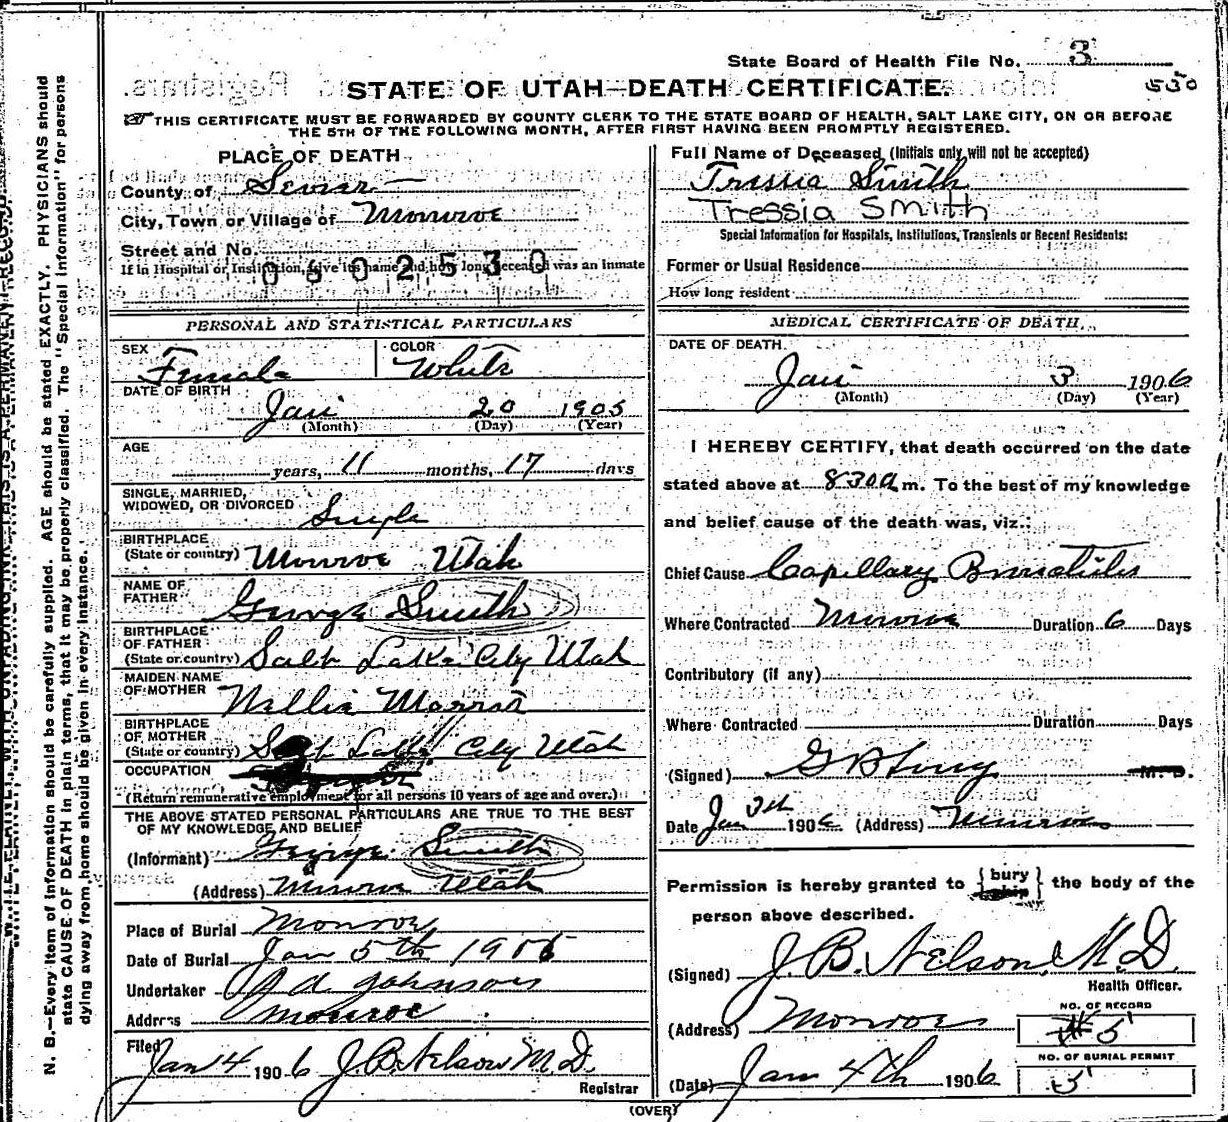 State Board of Health File No. 3
530
STATE OF UTAH—DEATH CERTIFICATE.
THIS CERTIFICATE MUST BE FORWARDED BY COUNTY CLERK TO THE STATE BOARD OF HEALTH, SALT LAKE CITY, ON OR BEFORE
THE 5TH OF THE FOLLOWING MONTH, AFTER FIRST HAVING BEEN PROMPTLY REGISTERED.
PLACE OF DEATH
County of Sevier
City, Town or Village of Monroe
Street and No.
If in Hospital or Institution, give its name and how long deceased was an inmate
0602530
PERSONAL AND STATISTICAL PARTICULARS
SEX Female COLOR White
DATE OF BIRTH
Jan 20 1905
(Month) (Day) (Year)
AGE
years, 11 months, 17 days
SINGLE, MARRIED,
WIDOWED, OR DIVORCED Single
BIRTHPLACE
(State or country) Monroe Utah
NAME OF
FATHER George Smith
BIRTHPLACE
OF FATHER
(State or country) Salt Lake City Utah
MAIDEN NAME
OF MOTHER Nellie
BIRTHPLACE
OF MOTHER
(State or country) Salt Lake City Utah
OCCUPATION
(Return remunerative employment for all persons 10 years of age and over.)
THE ABOVE STATED PERSONAL PARTICULARS ARE TRUE TO THE BEST
OF MY KNOWLEDGE AND BELIEF
(Informant) George Smith
(Address) Monroe Utah
Place of Burial Monroe
Date of Burial Jan 5th 1906
Undertaker Johnson
Address Monroe
Filed Jan 4 1906 J.B. Nelson M.D.
Registrar
Full Name of Deceased (Initials only will not be accepted)
Tressia Smith
Tressia Smith
Special Information for Hospitals, Institutions, Transients or Recent Residents:
Former or Usual Residence
How long resident
MEDICAL CERTIFICATE OF DEATH
DATE OF DEATH
Jan 3 1906
(Month) (Day) (Year)
I HEREBY CERTIFY, that death occurred on the date
stated above at 830 a m. To the best of my knowledge
and belief cause of the death was, viz.:
Chief Cause Capillary Bronchitis
Where Contracted Monroe Duration 6 Days
Contributory (if any)
Where Contracted Duration Days
(Signed) M. D.
Date Jan 1906 (Address) Monroe
Permission is hereby granted to { bury ship } the body of the
person above described.
(Signed) J. B. Nelson M.D.
Health Officer.
(Address) Monroe
NO. OF RECORD
5
(Date) Jan 4th 1906
NO. OF BURIAL PERMIT
5
(OVER)
N. B.—Every item of information should be carefully supplied. AGE should be stated EXACTLY. PHYSICIANS should
state CAUSE OF DEATH in plain terms, that it may be properly classified. The "Special Information" for persons
dying away from home should be given in every instance.